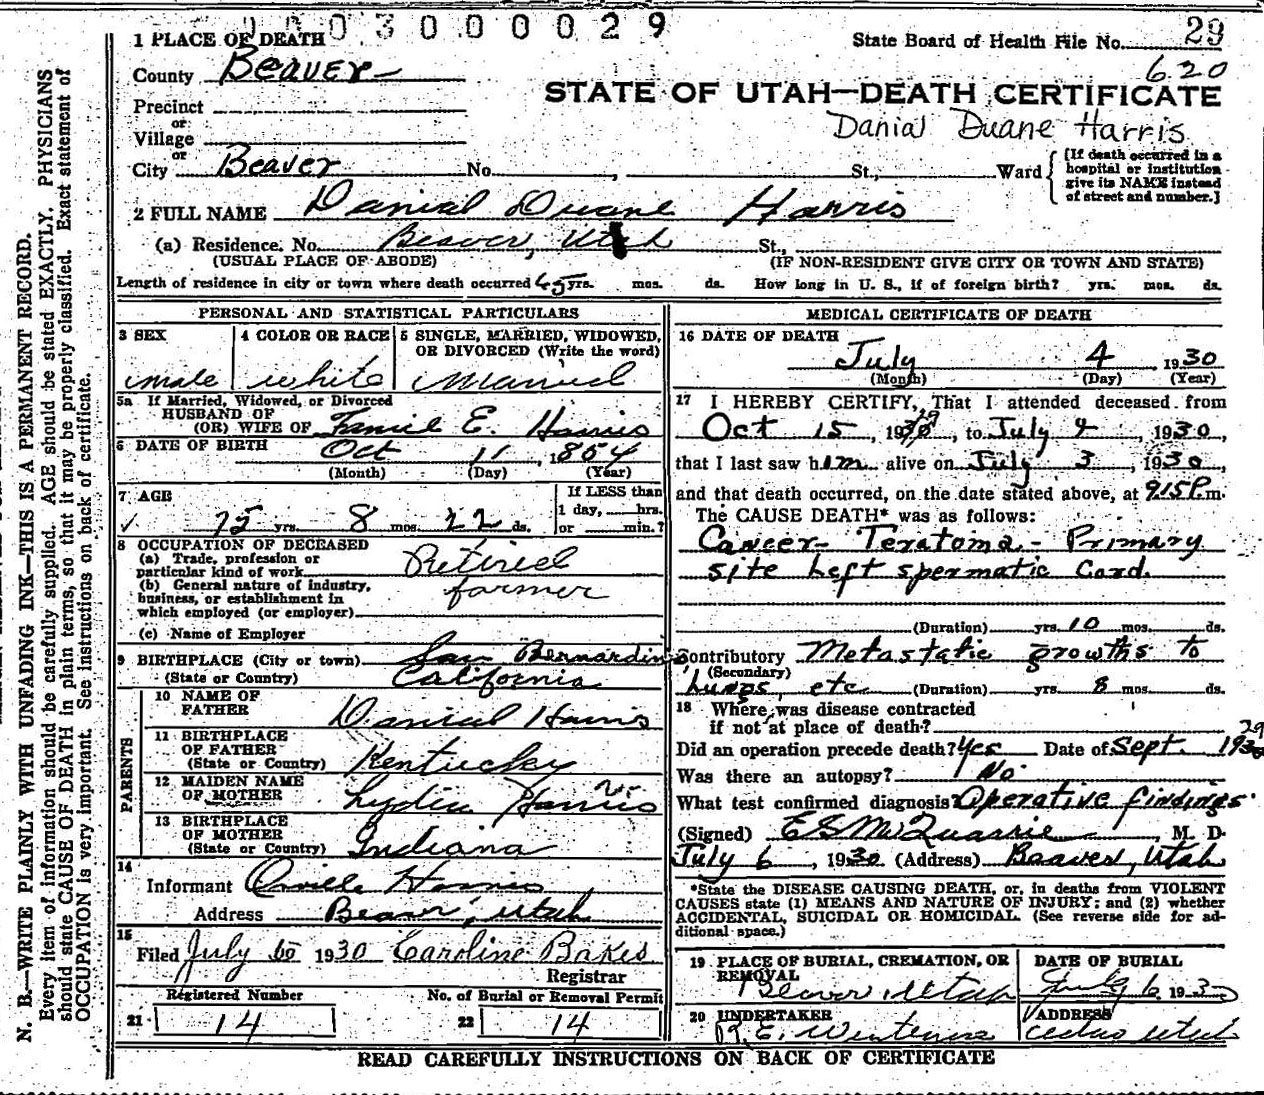 0 0 0 3 0 0 0 0 2 9
1 PLACE OF DEATH
State Board of Health File No. 29
620
County Beaver
STATE OF UTAH—DEATH CERTIFICATE
Precinct
or
Village
Danial Duane Harris
or
City Beaver No. , St., Ward
[If death occurred in a
hospital or institution
give its NAME instead
of street and number.]
2 FULL NAME Danial Duane Harris
(a) Residence. No. Beaver, Utah St.,
(USUAL PLACE OF ABODE) (IF NON-RESIDENT GIVE CITY OR TOWN AND STATE)
Length of residence in city or town where death occurred 65 yrs. mos. ds. How long in U. S., if of foreign birth? yrs. mos. ds.
PERSONAL AND STATISTICAL PARTICULARS
3 SEX
male
4 COLOR OR RACE
white
5 SINGLE, MARRIED, WIDOWED,
OR DIVORCED (Write the word)
Married
5a If Married, Widowed, or Divorced
HUSBAND OF
(OR) WIFE OF E. Harris
6 DATE OF BIRTH Oct 11, 1854
(Month) (Day) (Year)
7 AGE
✓ 75 yrs. 8 mos. 22 ds.
If LESS than
1 day, hrs.
or min.?
8 OCCUPATION OF DECEASED
(a) Trade, profession or
particular kind of work Retired
(b) General nature of industry,
business, or establishment in
which employed (or employer) farmer
(c) Name of Employer
9 BIRTHPLACE (City or town) San Bernardino
(State or Country) California
PARENTS
10 NAME OF
FATHER Danial Harris
11 BIRTHPLACE
OF FATHER
(State or Country) Kentucky
12 MAIDEN NAME
OF MOTHER Lydia Harris
13 BIRTHPLACE
OF MOTHER
(State or Country) Indiana
14
Informant Orville Harris
Address Beaver, Utah
15
Filed July 1930 Caroline Bakes
Registrar
Registered Number
21 14
No. of Burial or Removal Permit
22 14
MEDICAL CERTIFICATE OF DEATH
16 DATE OF DEATH
July 4 1930
(Month) (Day) (Year)
17 I HEREBY CERTIFY, That I attended deceased from
29
Oct 15, 1930, to July 4, 1930,
that I last saw him alive on July 3, 1930,
and that death occurred, on the date stated above, at 915P.m.
The CAUSE DEATH* was as follows:
Cancer- Teratoma - Primary
site Left spermatic Cord.
(Duration) yrs. 10 mos. ds.
Contributory Metastatic growths to
(Secondary)
Lungs, etc (Duration) yrs. 8 mos. ds.
18 Where was disease contracted
if not at place of death?
29
Did an operation precede death? Yes Date of Sept. 1930
Was there an autopsy? No
What test confirmed diagnosis Operative findings.
(Signed) E S McQuarrie, M. D.
July 6, 1930 (Address) Beaver, Utah
*State the DISEASE CAUSING DEATH, or, in deaths from VIOLENT
CAUSES state (1) MEANS AND NATURE OF INJURY; and (2) whether
ACCIDENTAL, SUICIDAL OR HOMICIDAL. (See reverse side for ad-
ditional space.)
19 PLACE OF BURIAL, CREMATION, OR
REMOVAL
Beaver, Utah
DATE OF BURIAL
July 6, 1930
20 UNDERTAKER
R. E.
ADDRESS
Utah
READ CAREFULLY INSTRUCTIONS ON BACK OF CERTIFICATE
N. B.—WRITE PLAINLY WITH UNFADING INK—THIS IS A PERMANENT RECORD.
Every item of information should be carefully supplied. AGE should be stated EXACTLY. PHYSICIANS
should state CAUSE OF DEATH in plain terms, so that it may be properly classified. Exact statement of
OCCUPATION is very important. See instructions on back of certificate.